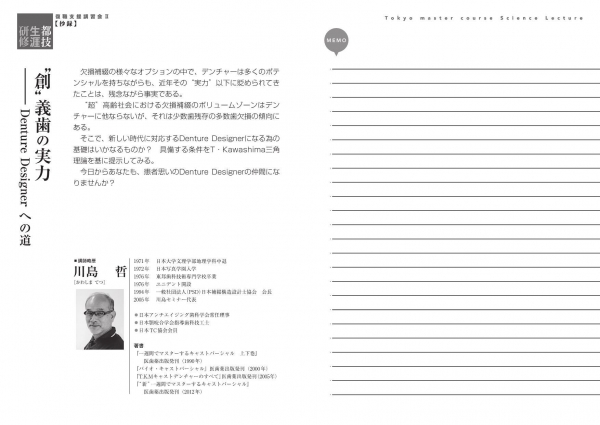 都技
生涯
研修
復職支援講習会Ⅱ
【抄録】
"創"義歯の実力
Denture Designer への道
欠損補綴の様々なオプションの中で、デンチャーは多くのポテ
ンシャルを持ちながらも、近年その“実力”以下に貶められてき
たことは、残念ながら事実である。
“超”高齢社会における欠損補綴のボリュームゾーンはデン
チャーに他ならないが、それは少数歯残存の多数歯欠損の傾向に
ある。
そこで、新しい時代に対応するDenture Designerになる為の
基礎はいかなるものか？ 具備する条件をT・Kawashima三角
理論を基に提示してみる。
今日からあなたも、患者思いのDenture Designerの仲間にな
りませんか？
●講師略歴
川島 哲
［かわしま てつ］
1971年 日本大学文理学部地理学科中退
1972年 日本写真学園入学
1976年 東邦歯科技術専門学校卒業
1976年 ユニデント開設
1994年 一般社団法人(PSD)日本補綴構造設計士協会 会長
2005年 川島セミナー代表
＊日本アンチエイジング歯科学会常任理事
＊日本顎咬合学会指導歯科技工士
＊日本TC協会会員
著書
『一週間でマスターするキャストパーシャル 上下巻』
医歯薬出版発刊（1990年）
『バイオ・キャストパーシャル』医歯薬出版発刊（2000年）
『T.K.Mキャストデンチャーのすべて』医歯薬出版発刊（2005年）
『“新”一週間でマスターするキャストパーシャル』
医歯薬出版発刊（2012年）
Tokyo master course Science Lecture
MEMO